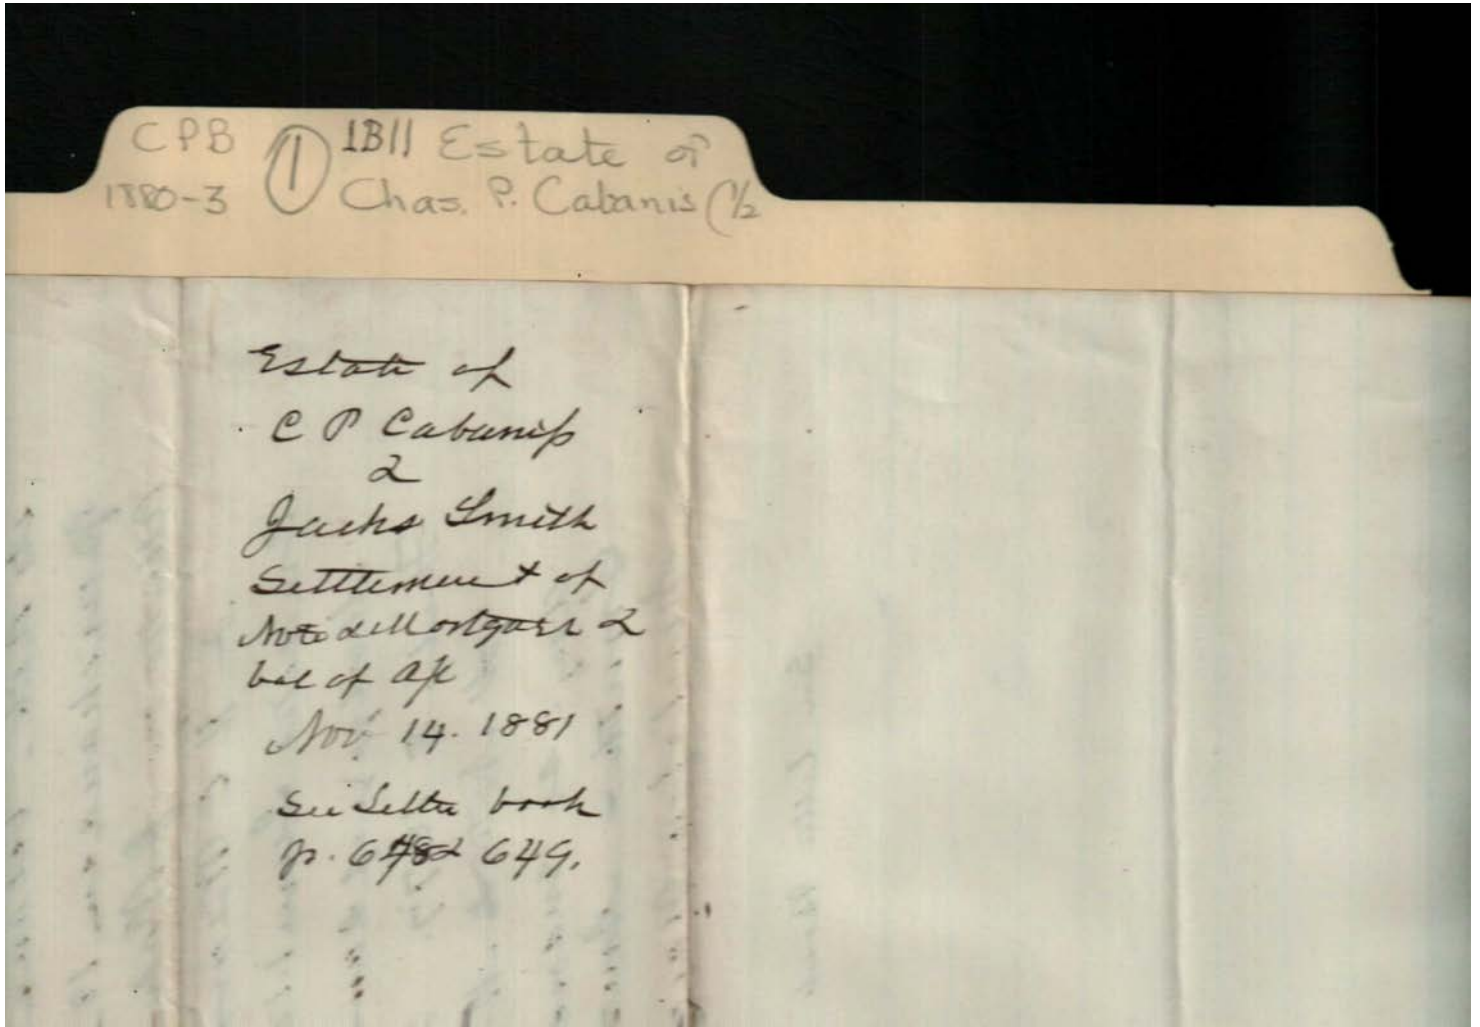 CPB ① 1B11 Estate of
1880-3 Chas. P. Cabanis (1/2
Estate of
C P Cabaniss
&
Jacks Smith
Settlement of
Note & Mortgage &
bal of a/c
Nov 14. 1881
See Letter book
p. 648 & 649.